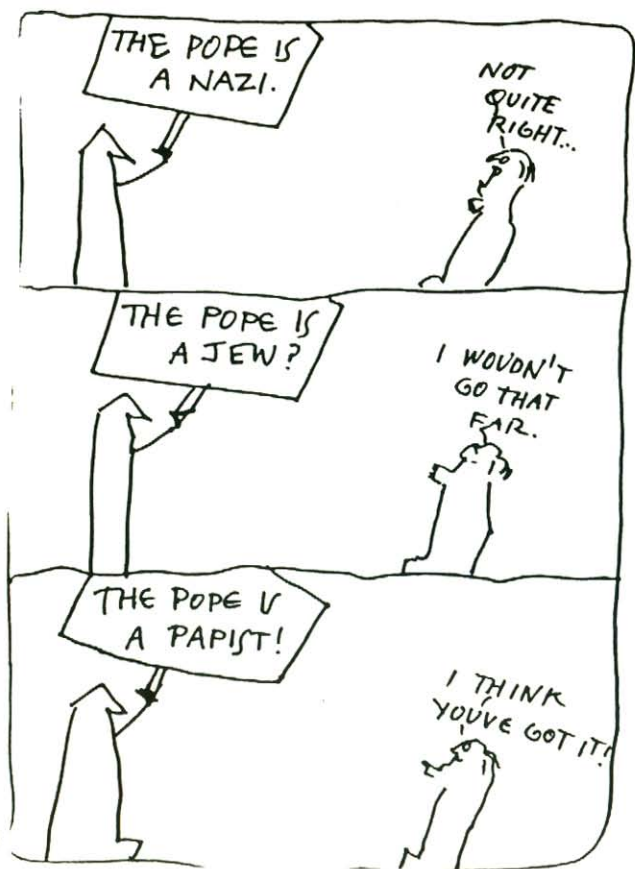 THE POPE IS
A NAZI.
NOT
QUITE
RIGHT...
THE POPE IS
A JEW?
I WOUDN'T
GO THAT
FAR.
THE POPE IS
A PAPIST!
I THINK
YOU'VE GOT IT!